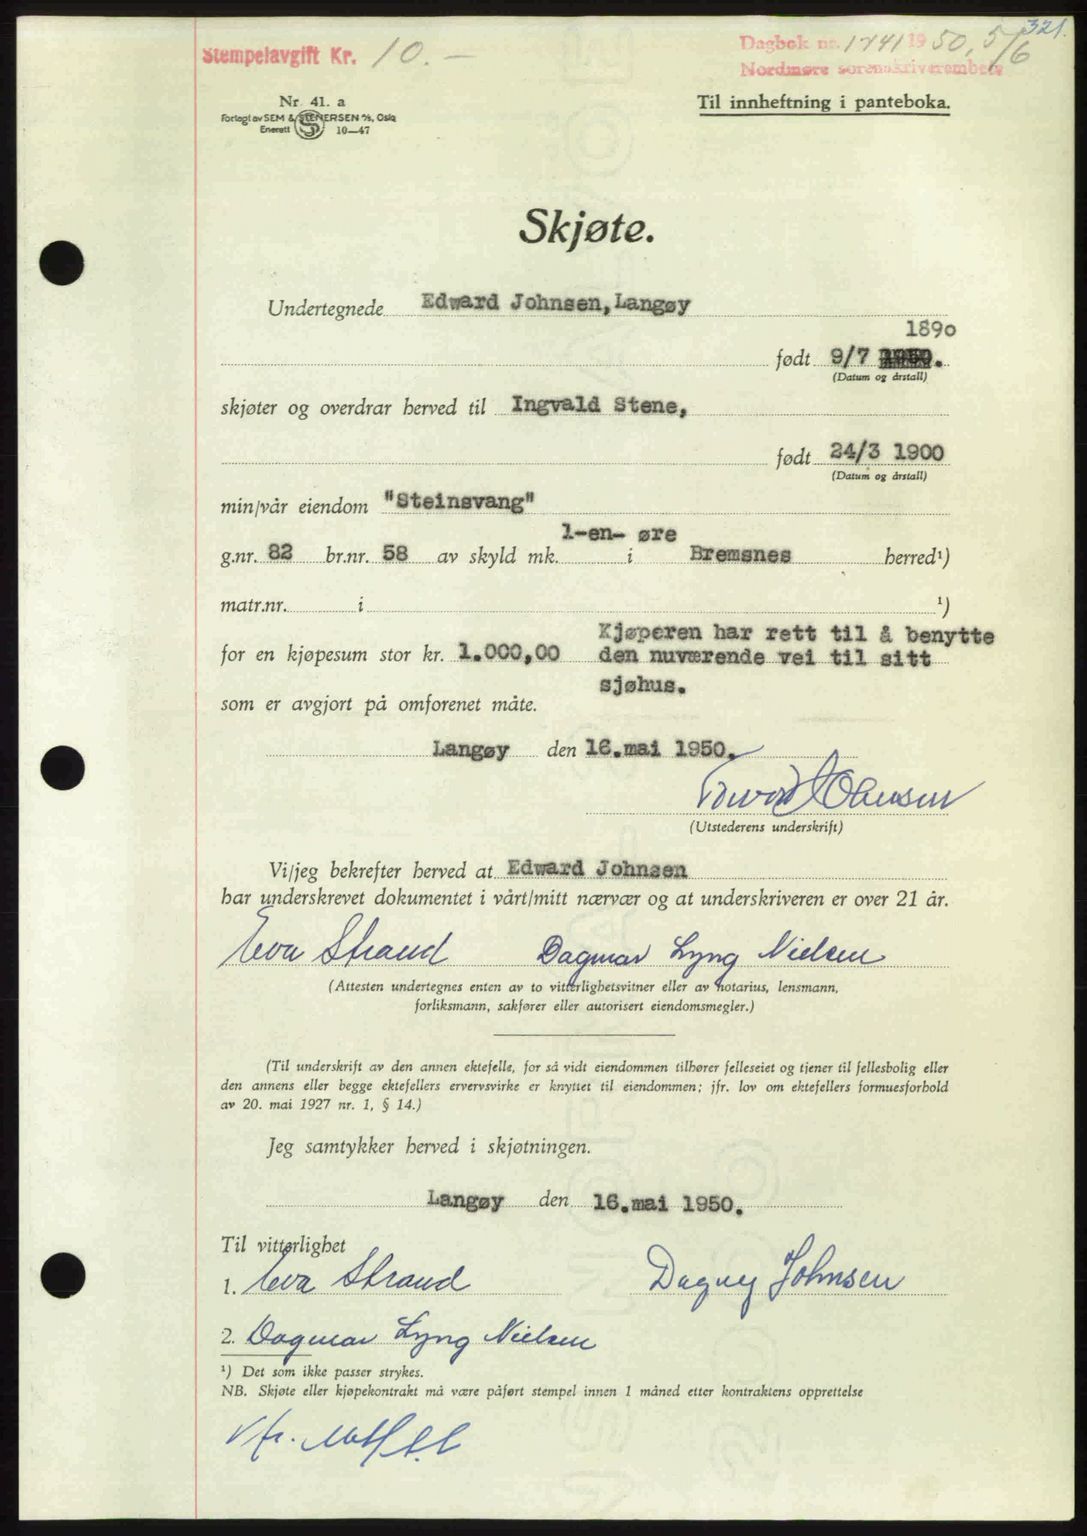 321.
Stempelavgift Kr. 10.-
Dagbok nr. 1741 1950, 5/6
Nordmøre sorenskriverembete
Nr. 41. a
Forlagt av SEM & STENERSEN A/S, Oslo
Enerett 10-47
Til innheftning i panteboka.
Skjøte.
Undertegnede Edward Johnsen, Langøy
1890
født 9/7 1950.
(Datum og årstall)
skjøter og overdrar herved til Ingvald Stene,
født 24/3 1900
(Datum og årstall)
min/vår eiendom "Steinsvang"
1-en- øre
g.nr. 82 br.nr. 58 av skyld mk. i Bremsnes herred¹)
matr.nr. i ¹)
Kjøperen har rett til å benytte
for en kjøpesum stor kr. 1.000,00 den nuværende vei til sitt
sjøhus.
som er avgjort på omforenet måte.
Langøy den 16.mai 1950.
Edward Johnsen
(Utstederens underskrift)
Vi/jeg bekrefter herved at Edward Johnsen
har underskrevet dokumentet i vårt/mitt nærvær og at underskriveren er over 21 år.
Eva Strand Dagmar Lyng Nielsen
(Attesten undertegnes enten av to vitterlighetsvitner eller av notarius, lensmann,
forliksmann, sakfører eller autorisert eiendomsmegler.)
(Til underskrift av den annen ektefelle, for så vidt eiendommen tilhører felleseiet og tjener til fellesbolig eller
den annens eller begge ektefellers ervervsvirke er knyttet til eiendommen; jfr. lov om ektefellers formuesforhold
av 20. mai 1927 nr. 1, § 14.)
Jeg samtykker herved i skjøtningen.
Langøy den 16.mai 1950.
Til vitterlighet
1. Eva Strand Dagny Johnsen
2. Dagmar Lyng Nielsen
¹) Det som ikke passer strykes.
NB. Skjøte eller kjøpekontrakt må være påført stempel innen 1 måned etter kontraktens opprettelse